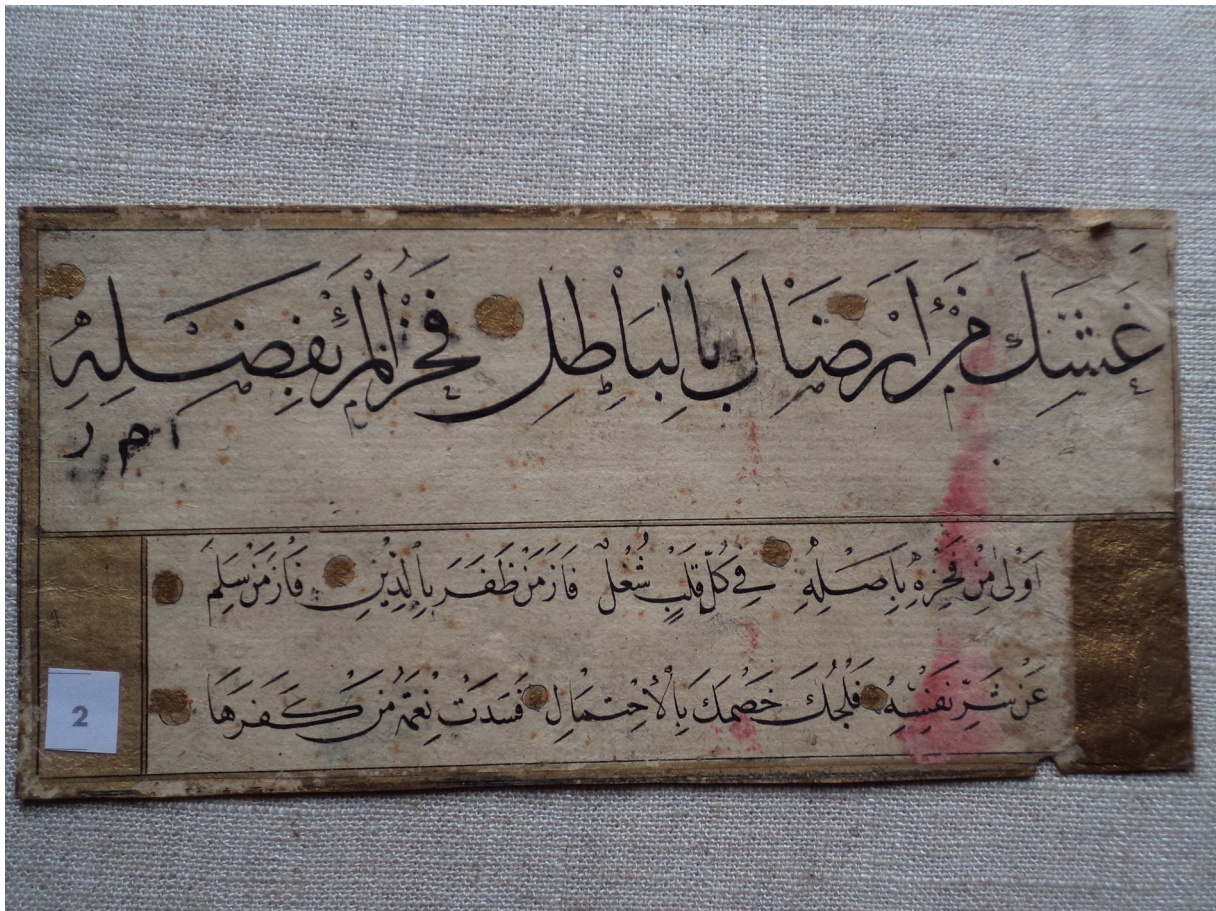 غَشَّكَ مَنْ أَرْضَاكَ بِالْبَاطِلِ فَخْرُ الْمَرْءِ بِفَضْلِهِ
ا م ر
اَوْلٰى مِنْ فَخْرِهِ بِاَصْلِهِ فِي كُلِّ قَلْبٍ شُغْلٌ فَازَ مَنْ ظَفَرَ بِالدِّينِ فَازَ مَنْ سَلِمَ
عَنْ شَرِّ نَفْسِهِ فَلْجُكَ خَصْمَكَ بِالْاِحْتِمَالِ فَسَدَتْ نِعْمَةُ مَنْ كَفَرَهَا
2